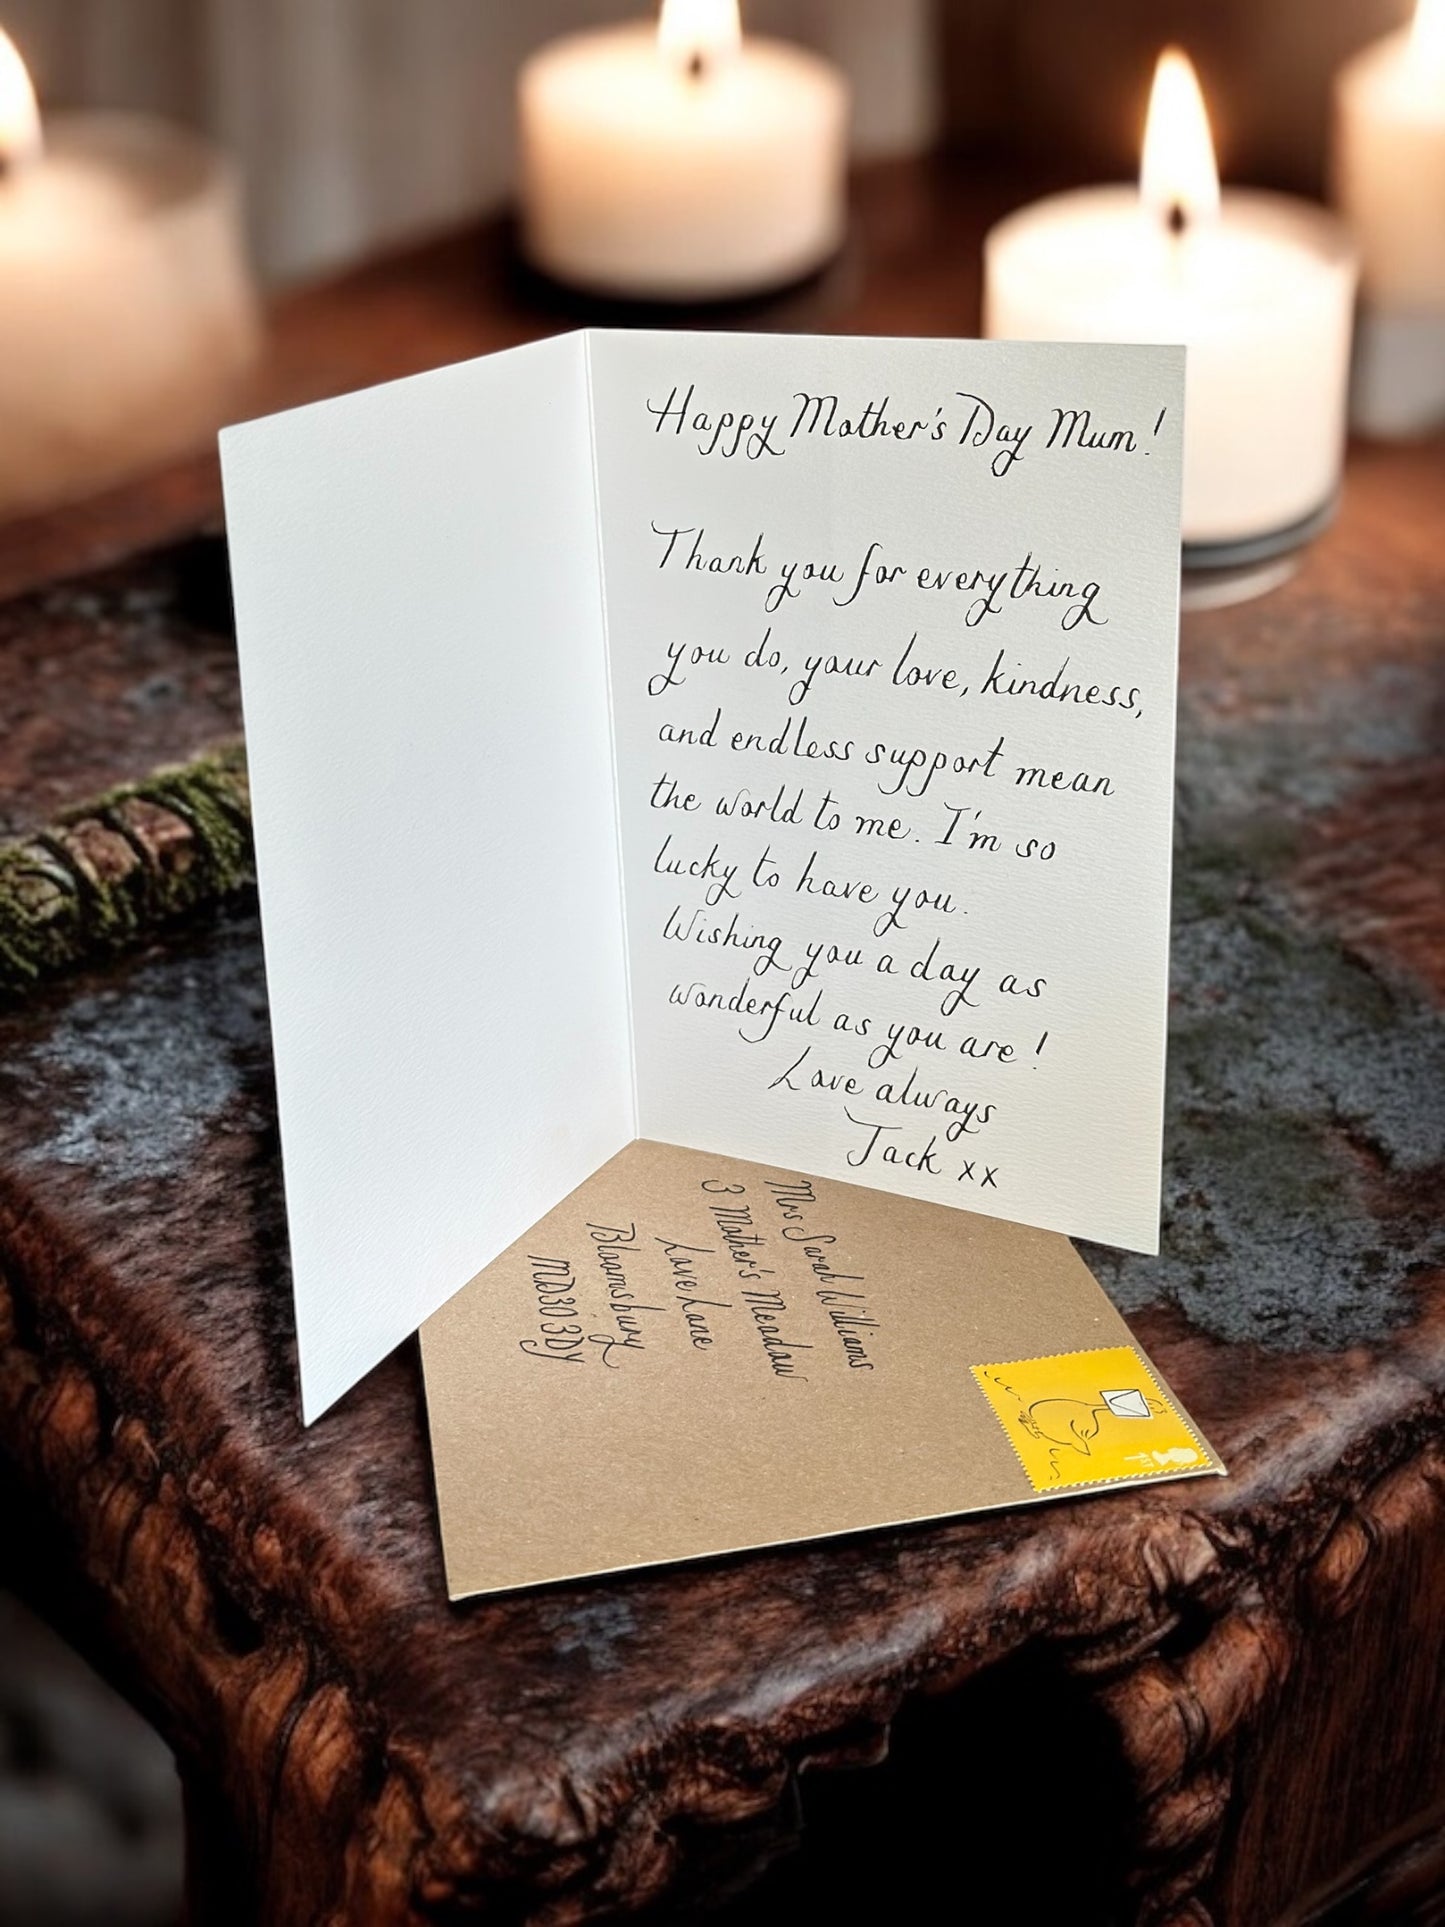 Happy Mother's Day Mum!
Thank you for everything
you do, your love, kindness,
and endless support mean
the world to me. I'm so
lucky to have you.
Wishing you a day as
wonderful as you are!
Love always
Jack xx
Mrs Sarah Williams
3 Mother's Meadow
Love Lane
Bloomsbury
MD30 3DY
1ST